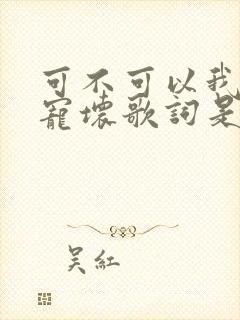 可不可以我
寵壞歌詞是
吴紅